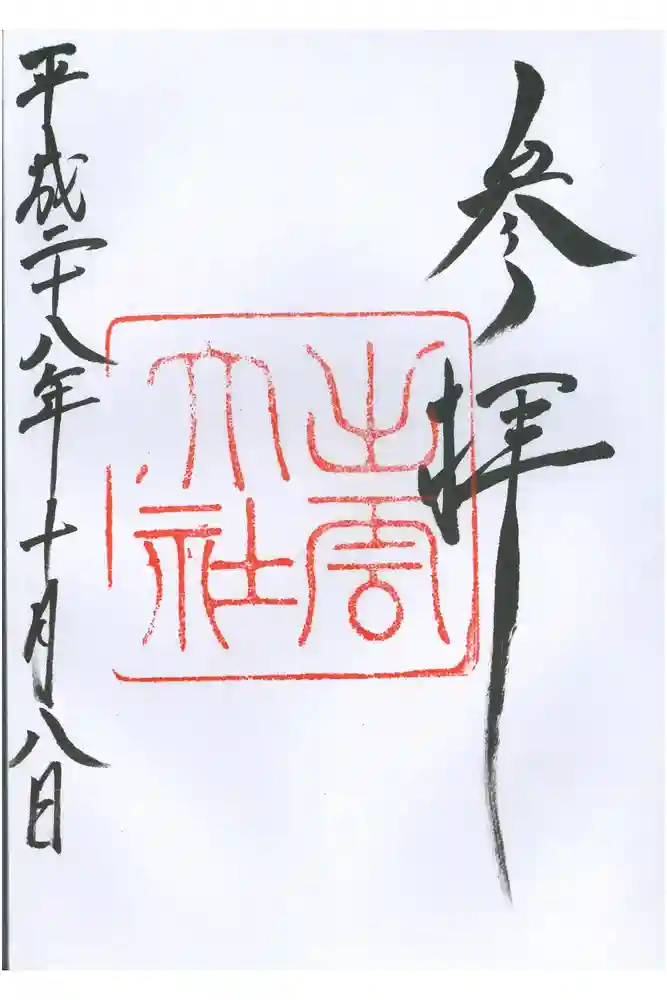 参拝
出雲
大社
平成二十八年十月八日